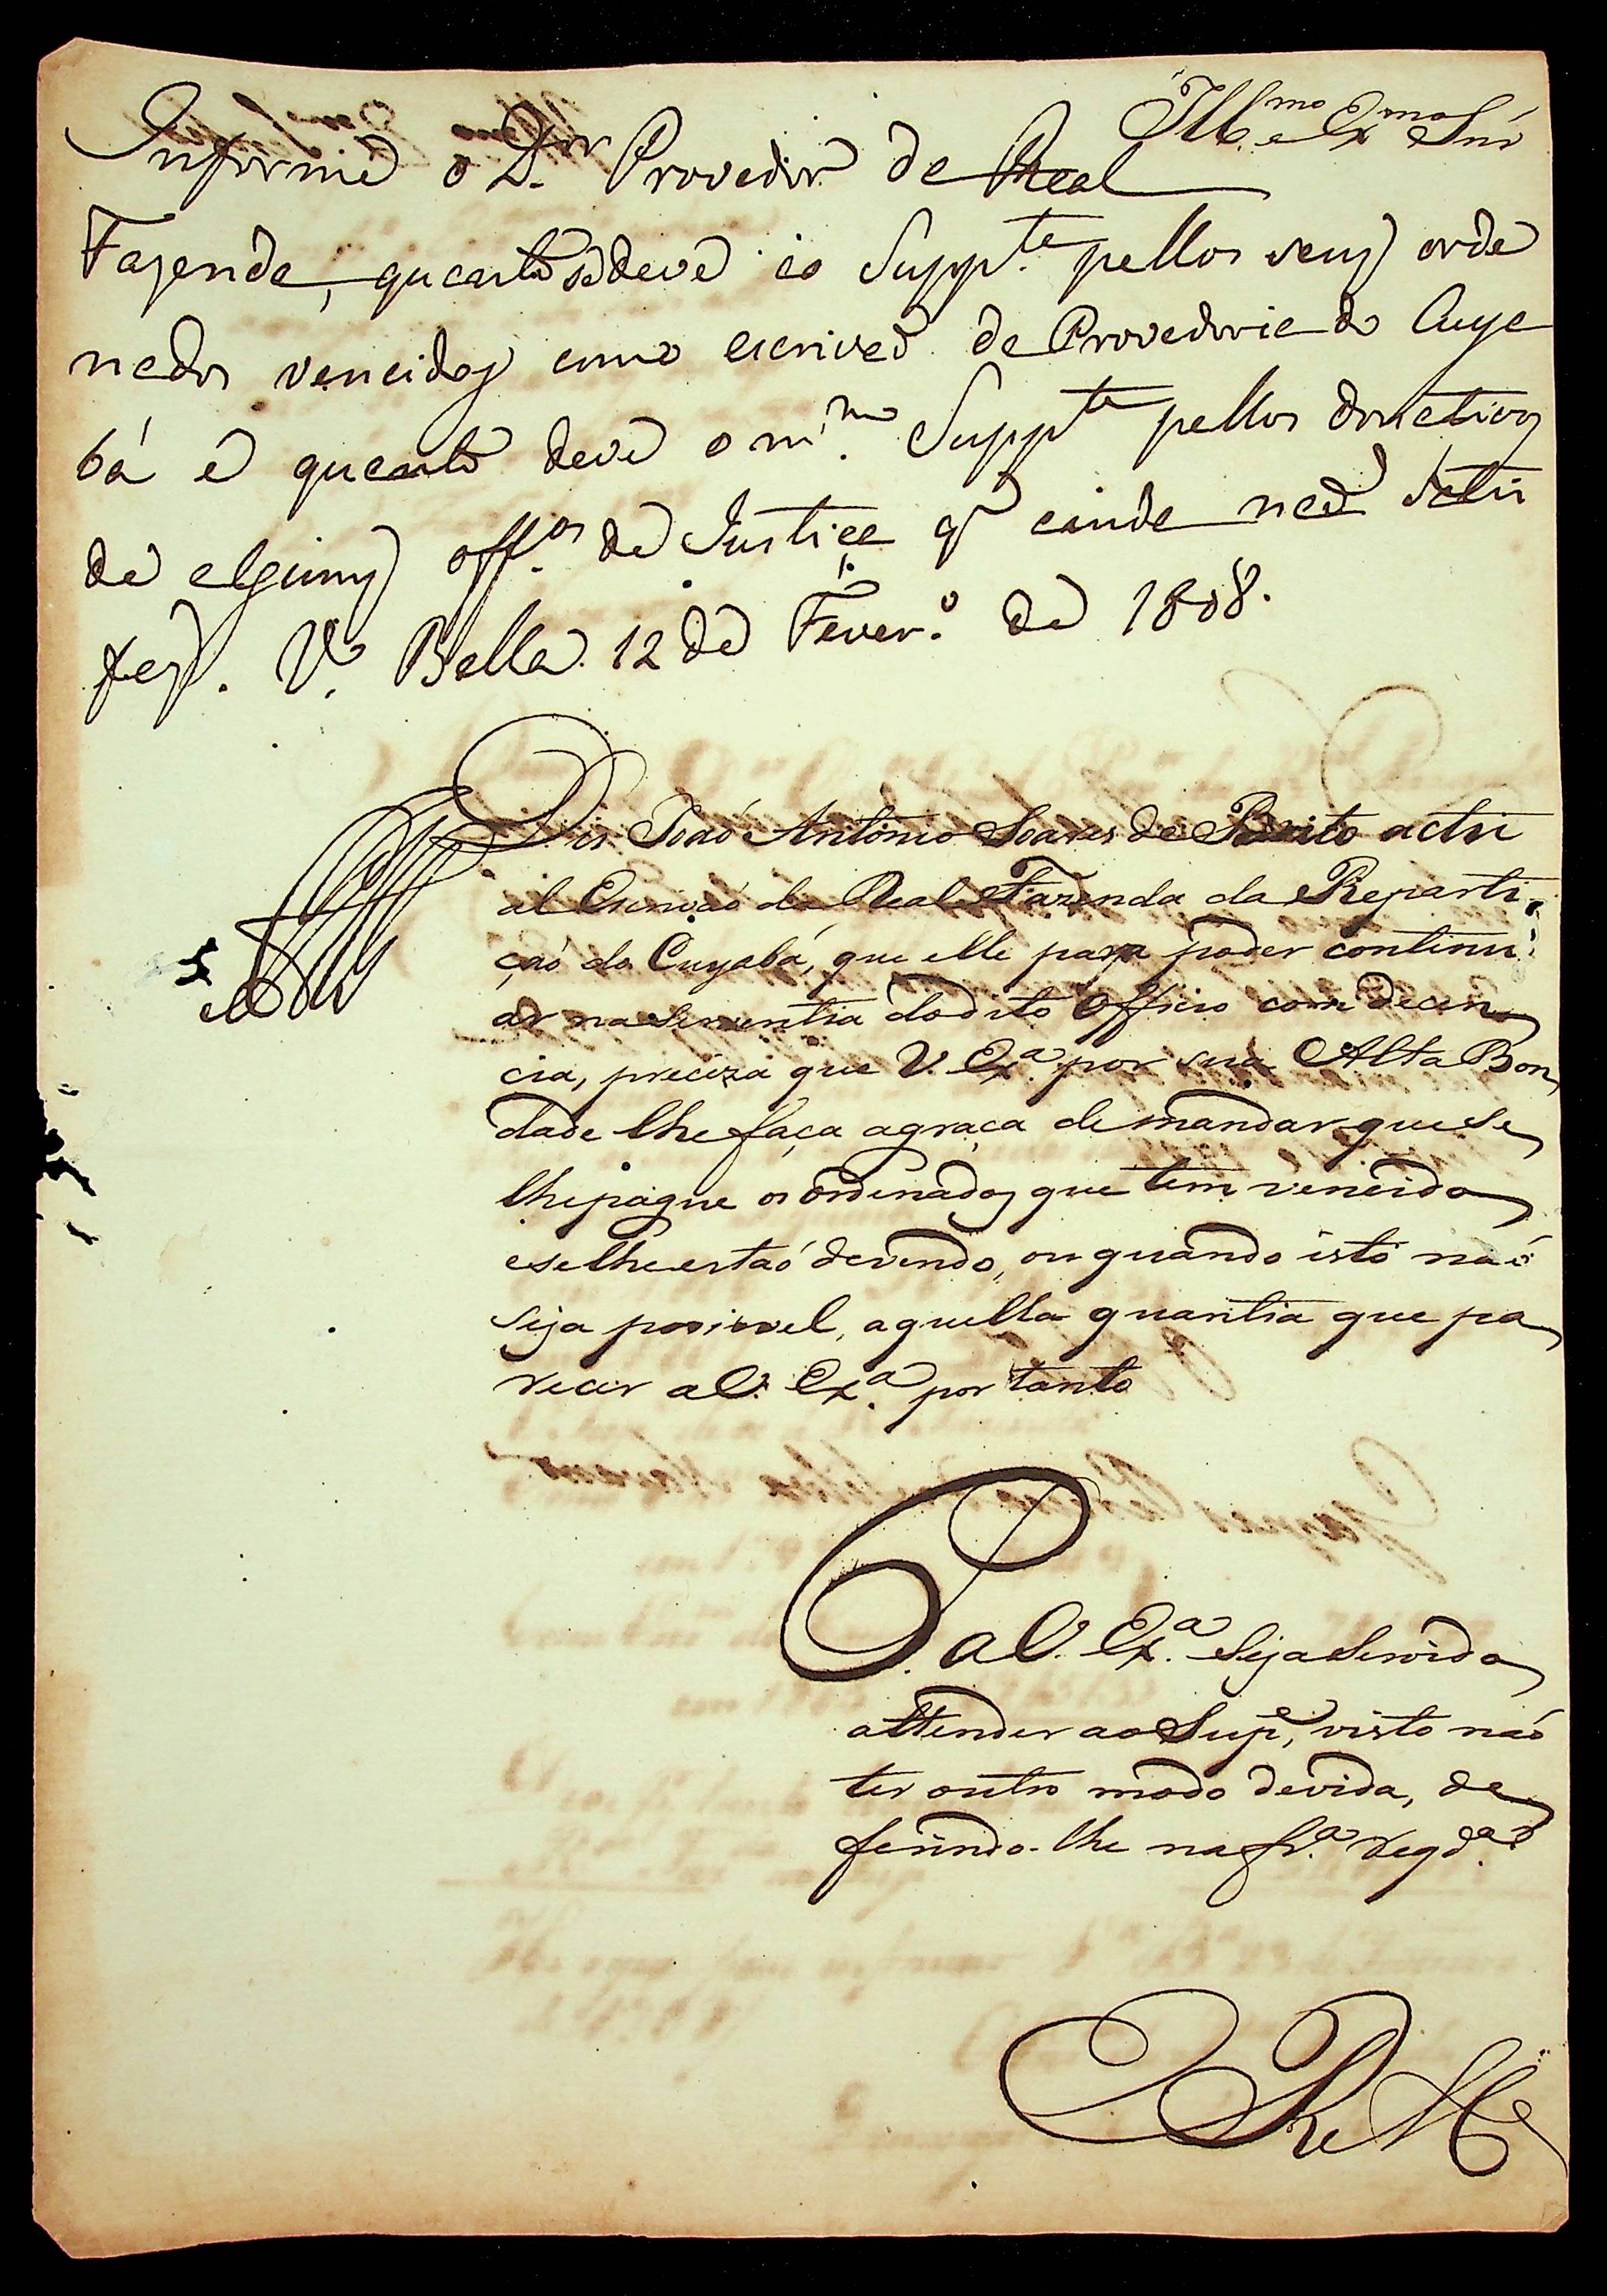 Ill.mo e Ex.mo Snr
Informe o D.or Provedor da Real
Fazenda, quanto se deve ao Supp.te pellos seus orde
nados vencidos como escrivaõ da Provedoria do Cuya
bá e quanto deve o m.mo Supp.te pellos donativos
de alguns off.os de Justiça q' ainda naõ satis
fez. V.a Bella 12 de Fever.o de 1808.
Diz Joaõ Antonio Soares de Brito actu
al Escrivaõ da Real Fazenda da Reparti
çaõ do Cuyabá, que elle para poder continu
ar na serventia do dito Officio com decen
cia, preciza que V. Ex.a por sua Alta Bon
dade lhe faça a graça de mandar que se
lhe pague os ordenados que tem vencido
e se lhe estaõ devendo, ou quando isto naõ
seja possivel, aquella quantia que pa
recer a V. Ex.a por tanto
P. a V. Ex.a seja servido
attender ao Sup.e, visto naõ
ter outro modo de vida, de
ferindo-lhe na fr.a reqd.a
E R M.ce